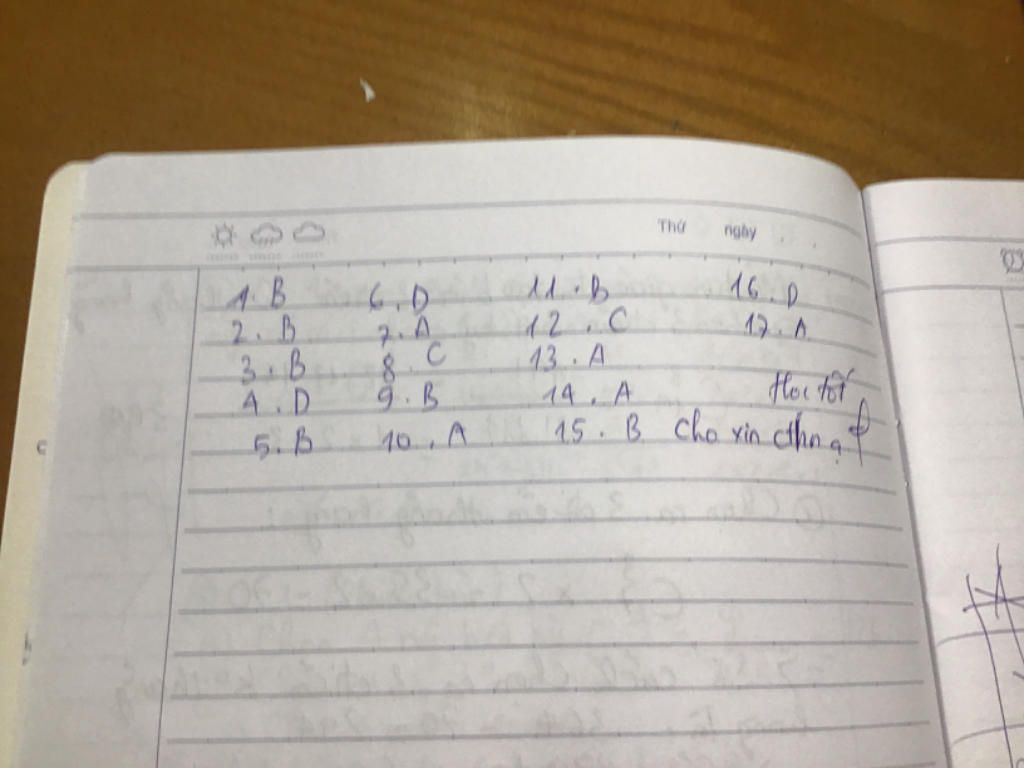 Thứ ngày
1. B 6. D 11. B 16. D
2. B 7. A 12. C 17. A
3. B 8. C 13. A
4. D 9. B 14. A Học tốt
5. B 10. A 15. B Cho xin cthn ạ